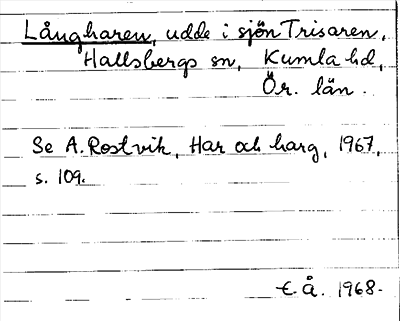 Långharen, udde i sjön Trisaren,
Hallsbergs sn, Kumla hd,
Ör. län.
Se A. Rostvik, Har och harg, 1967,
s. 109.
€.Å. 1968.